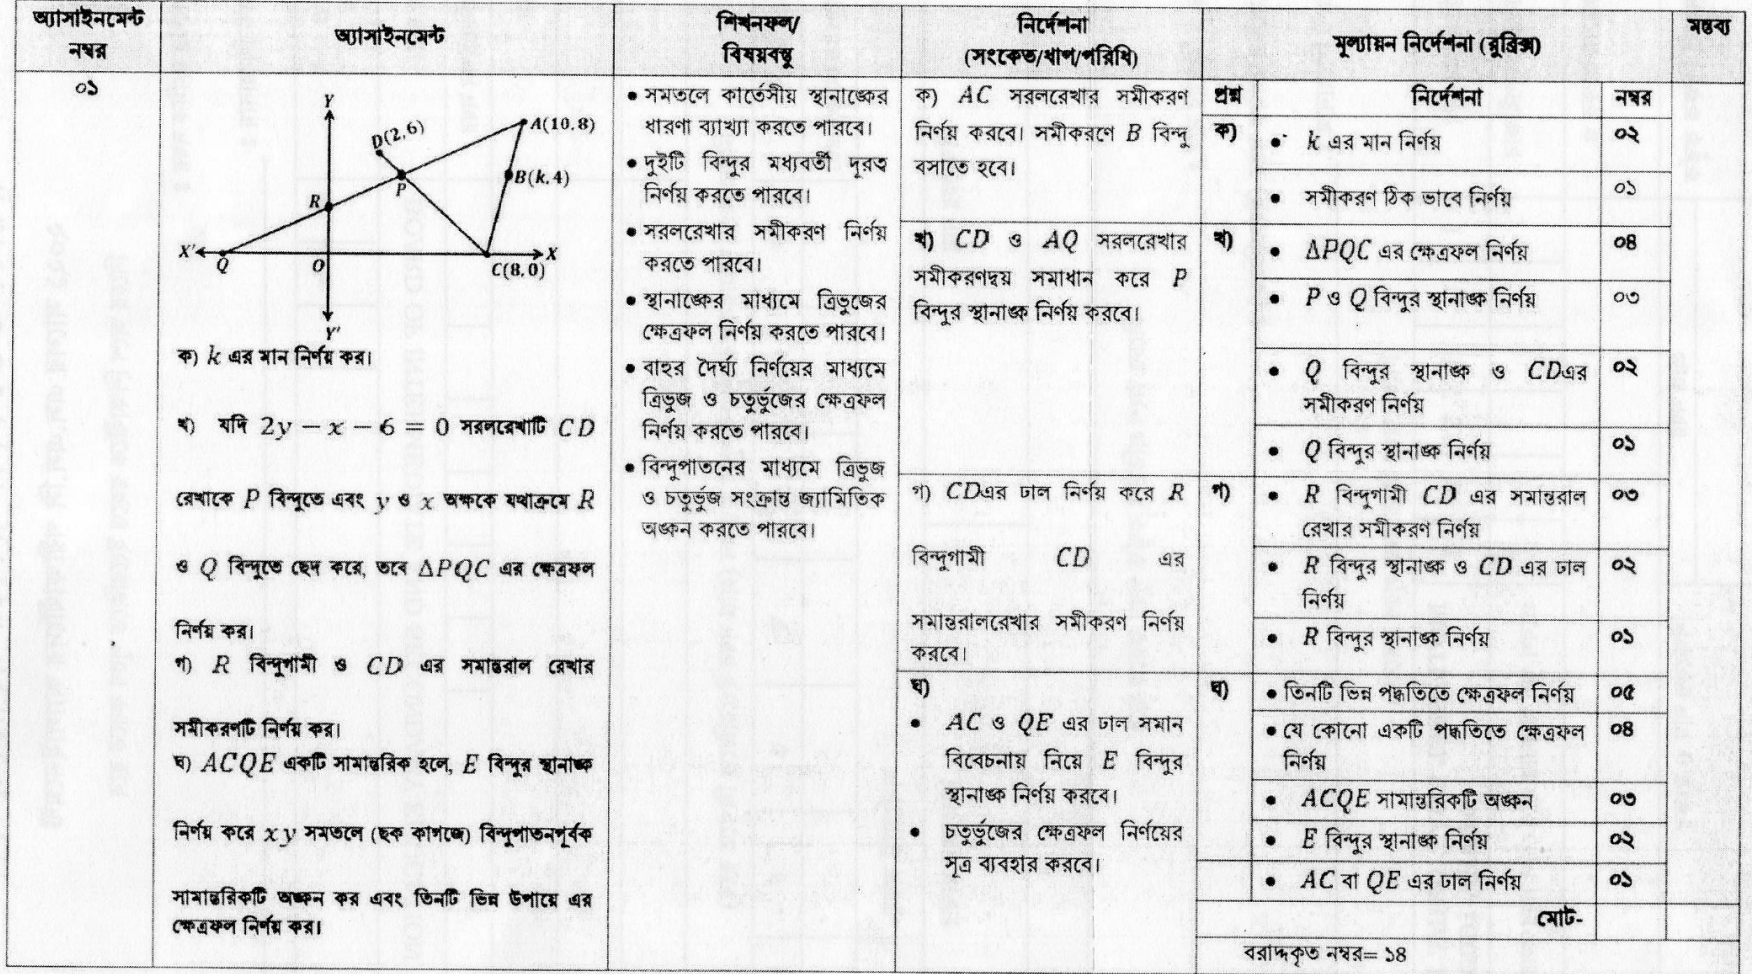 অ্যাসাইনমেন্ট
নম্বর
অ্যাসাইনমেন্ট
শিখনফল/
বিষয়বস্তু
নির্দেশনা
(সংকেত/ধাপ/পরিধি)
মূল্যায়ন নির্দেশনা (রুব্রিক্স)
মন্তব্য
০১
Y
D(2,6)
A(10,8)
B(k,4)
P
R
X'
Q
O
C(8,0)
X
Y'
ক) k এর মান নির্ণয় কর।
খ) যদি 2y − x − 6 = 0 সরলরেখাটি CD
রেখাকে P বিন্দুতে এবং y ও x অক্ষকে যথাক্রমে R
ও Q বিন্দুতে ছেদ করে, তবে ΔPQC এর ক্ষেত্রফল
নির্ণয় কর।
গ) R বিন্দুগামী ও CD এর সমান্তরাল রেখার
সমীকরণটি নির্ণয় কর।
ঘ) ACQE একটি সামান্তরিক হলে, E বিন্দুর স্থানাঙ্ক
নির্ণয় করে xy সমতলে (ছক কাগজে) বিন্দুপাতনপূর্বক
সামান্তরিকটি অঙ্কন কর এবং তিনটি ভিন্ন উপায়ে এর
ক্ষেত্রফল নির্ণয় কর।
• সমতলে কার্তেসীয় স্থানাঙ্কের
ধারণা ব্যাখ্যা করতে পারবে।
• দুইটি বিন্দুর মধ্যবর্তী দূরত্ব
নির্ণয় করতে পারবে।
• সরলরেখার সমীকরণ নির্ণয়
করতে পারবে।
• স্থানাঙ্কের মাধ্যমে ত্রিভুজের
ক্ষেত্রফল নির্ণয় করতে পারবে।
• বাহুর দৈর্ঘ্য নির্ণয়ের মাধ্যমে
ত্রিভুজ ও চতুর্ভুজের ক্ষেত্রফল
নির্ণয় করতে পারবে।
• বিন্দুপাতনের মাধ্যমে ত্রিভুজ
ও চতুর্ভুজ সংক্রান্ত জ্যামিতিক
অঙ্কন করতে পারবে।
ক) AC সরলরেখার সমীকরণ
নির্ণয় করবে। সমীকরণে B বিন্দু
বসাতে হবে।
খ) CD ও AQ সরলরেখার
সমীকরণদ্বয় সমাধান করে P
বিন্দুর স্থানাঙ্ক নির্ণয় করবে।
গ) CDএর ঢাল নির্ণয় করে R
বিন্দুগামী CD এর
সমান্তরালরেখার সমীকরণ নির্ণয়
করবে।
ঘ)
• AC ও QE এর ঢাল সমান
বিবেচনায় নিয়ে E বিন্দুর
স্থানাঙ্ক নির্ণয় করবে।
• চতুর্ভুজের ক্ষেত্রফল নির্ণয়ের
সূত্র ব্যবহার করবে।
প্রশ্ন নির্দেশনা নম্বর
ক) • k এর মান নির্ণয় ০২
• সমীকরণ ঠিক ভাবে নির্ণয় ০১
খ) • ΔPQC এর ক্ষেত্রফল নির্ণয় ০৪
• P ও Q বিন্দুর স্থানাঙ্ক নির্ণয় ০৩
• Q বিন্দুর স্থানাঙ্ক ও CDএর ০২
সমীকরণ নির্ণয়
• Q বিন্দুর স্থানাঙ্ক নির্ণয় ০১
গ) • R বিন্দুগামী CD এর সমান্তরাল ০৩
রেখার সমীকরণ নির্ণয়
• R বিন্দুর স্থানাঙ্ক ও CD এর ঢাল ০২
নির্ণয়
• R বিন্দুর স্থানাঙ্ক নির্ণয় ০১
ঘ) • তিনটি ভিন্ন পদ্ধতিতে ক্ষেত্রফল নির্ণয় ০৫
• যে কোনো একটি পদ্ধতিতে ক্ষেত্রফল ০৪
নির্ণয়
• ACQE সামান্তরিকটি অঙ্কন ০৩
• E বিন্দুর স্থানাঙ্ক নির্ণয় ০২
• AC বা QE এর ঢাল নির্ণয় ০১
মোট-
বরাদ্দকৃত নম্বর= ১৪